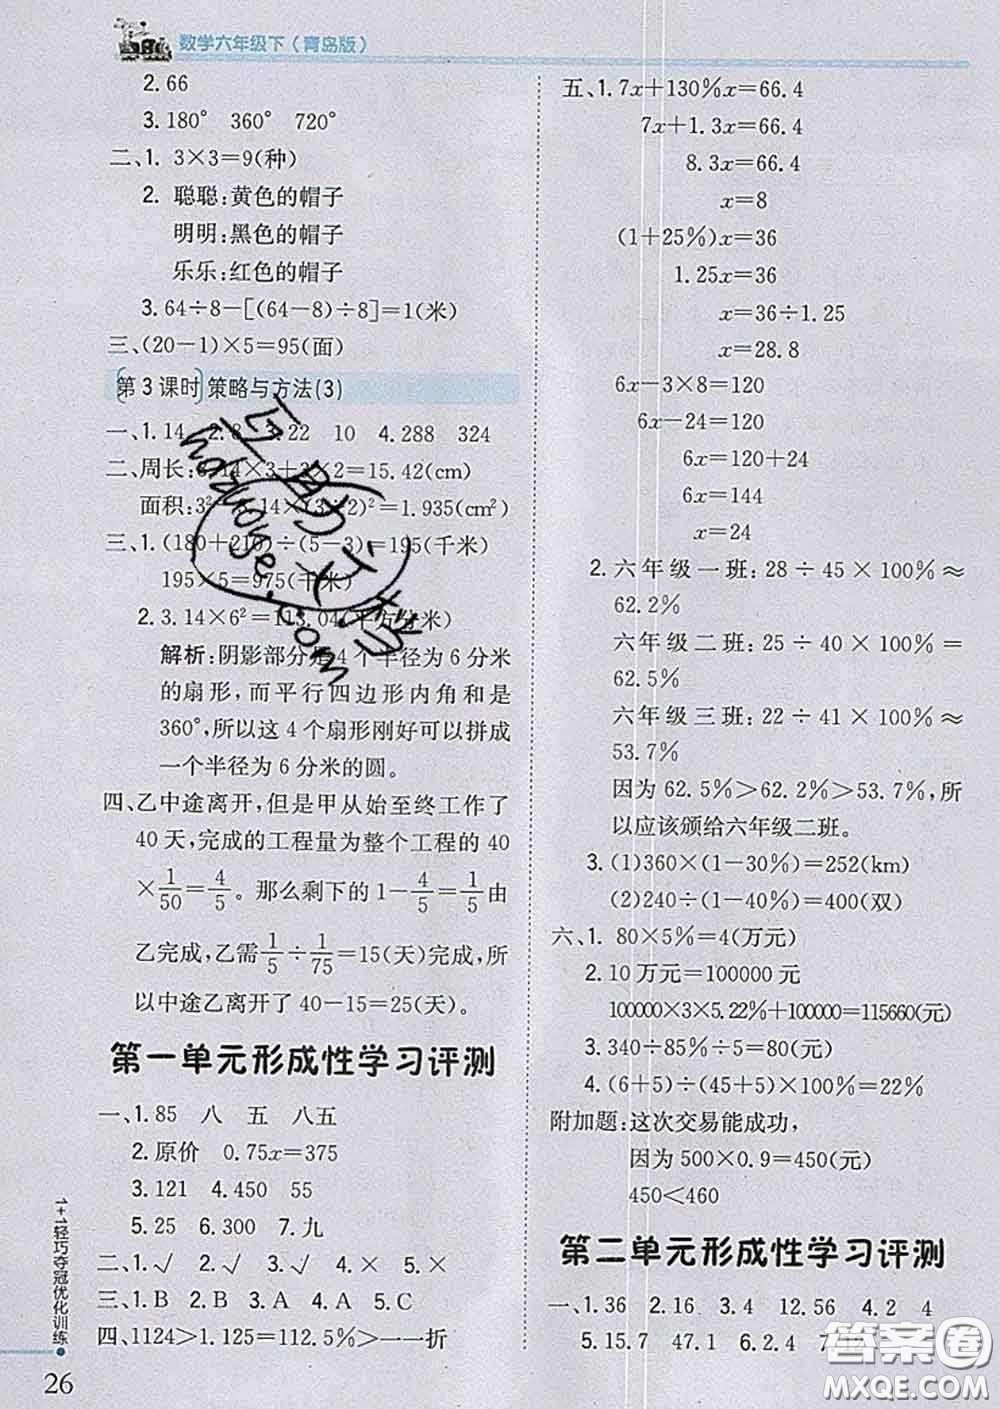 数学六年级下(青岛版)
2.66
3.180° 360° 720°
二、1. 3×3=9(种)
2. 聪聪:黄色的帽子
明明:黑色的帽子
乐乐:红色的帽子
3.64÷8-[(64-8)÷8]=1(米)
三、(20-1)×5=95(面)
第3课时 策略与方法(3)
一、1.14 2.8 3.22 10 4.288 324
二、周长:3.14×3+3×2=15.42(cm)
面积:3²-3.14×(3÷2)²=1.935(cm²)
三、1.(180+210)÷(5-3)=195(千米)
195×5=975(千米)
2.3.14×6²=113.04(平方分米)
解析:阴影部分是4个半径为6分米
的扇形,而平行四边形内角和是
360°,所以这4个扇形刚好可以拼成
一个半径为6分米的圆。
四、乙中途离开,但是甲从始至终工作了
40天,完成的工程量为整个工程的40
×1/50=4/5。那么剩下的1-4/5=1/5由
乙完成,乙需1/5÷1/75=15(天)完成,所
以中途乙离开了40-15=25(天)。
第一单元形成性学习评测
一、1.85 八 五 八五
2.原价 0.75x=375
3.121 4.450 55
5.25 6.300 7.九
二、1.√ 2.√ 3.√ 4.× 5.√
三、1.B 2.B 3.B 4.A 5.C
四、1124>1.125=112.5%>一一折
五、1.7x+130%x=66.4
7x+1.3x=66.4
8.3x=66.4
x=8
(1+25%)x=36
1.25x=36
x=36÷1.25
x=28.8
6x-3×8=120
6x-24=120
6x=120+24
6x=144
x=24
2.六年级一班:28÷45×100%≈
62.2%
六年级二班:25÷40×100%=
62.5%
六年级三班:22÷41×100%≈
53.7%
因为62.5%>62.2%>53.7%,所
以应该颁给六年级二班。
3.(1)360×(1-30%)=252(km)
(2)240÷(1-40%)=400(双)
六、1. 80×5%=4(万元)
2.10万元=100000元
100000×3×5.22%+100000=115660(元)
3.340÷85%÷5=80(元)
4.(6+5)÷(45+5)×100%=22%
附加题:这次交易能成功,
因为500×0.9=450(元)
450<460
第二单元形成性学习评测
一、1.36 2.16 3.4 12.56 4.2 4
5.15.7 47.1 6.2.4
1+1轻巧夺冠优化训练
26
答案圈
MXQE.COM